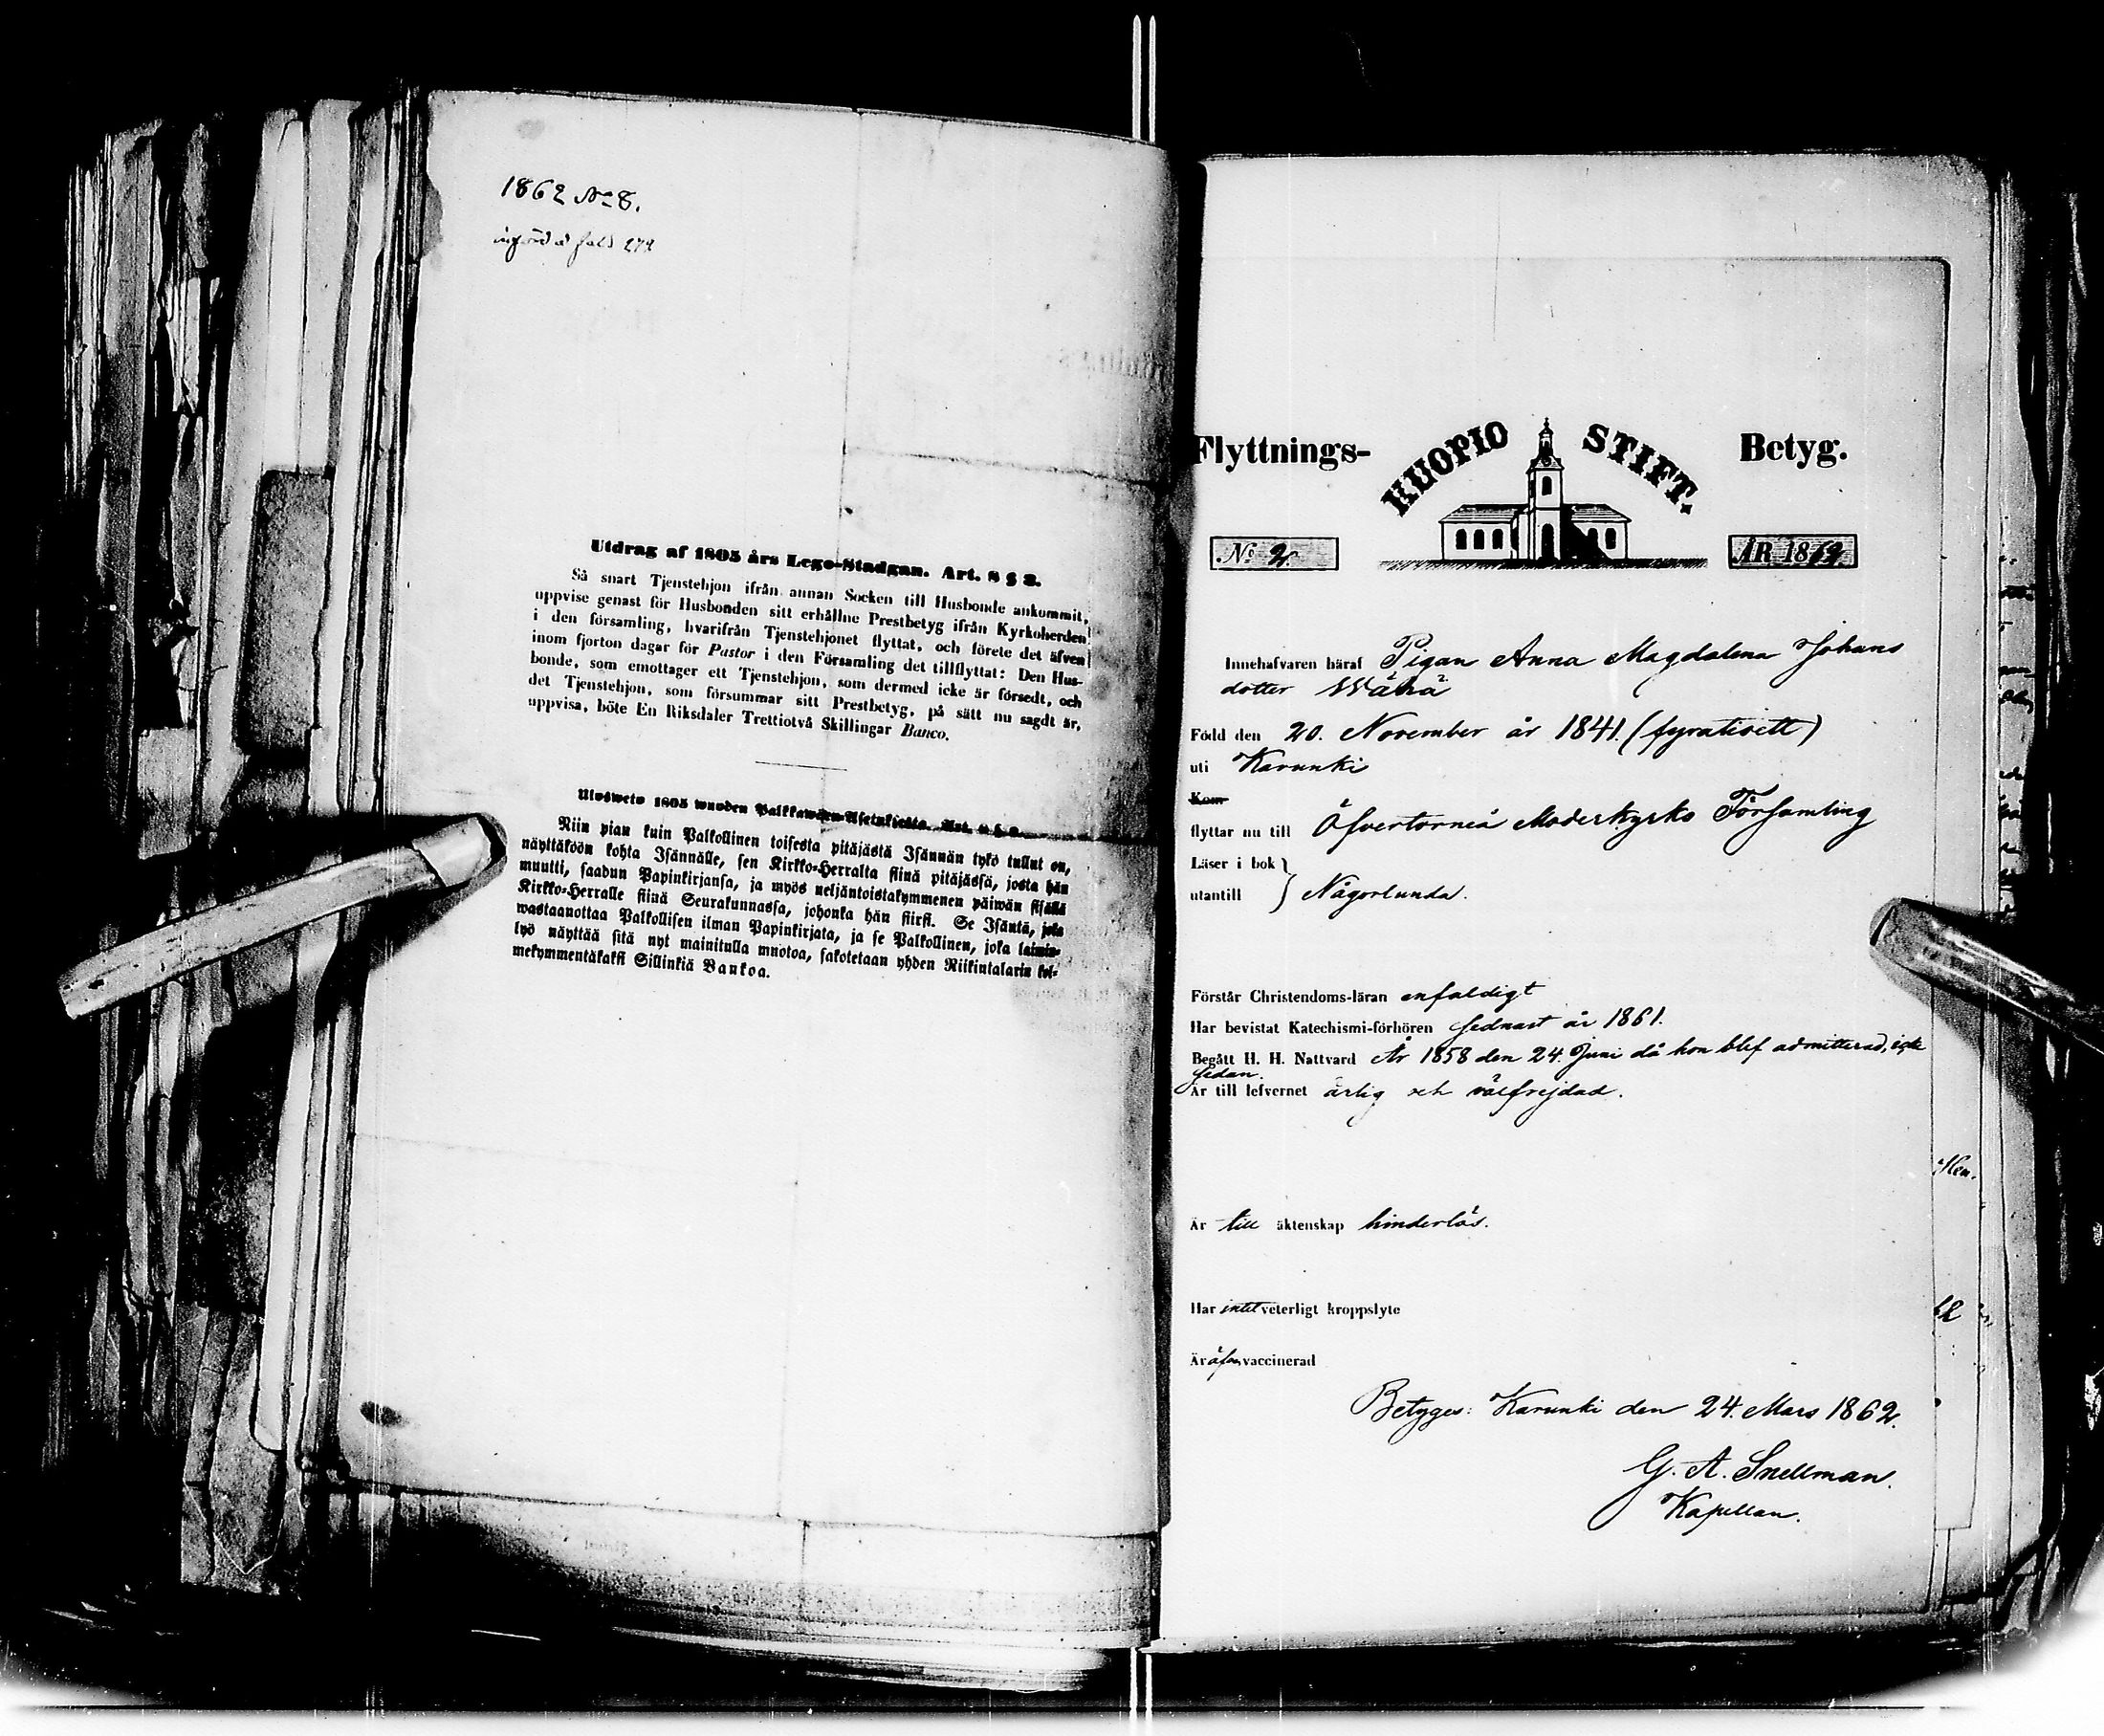 1862 No 8.
införd å fol. 272
Utdrag af 1805 års Lego-Stadgan. Art. 8 § 2.
Så snart Tjenstehjon ifrån annan Socken till Husbonde ankommit,
uppvise genast för Husbonden sitt erhållne Prestbetyg ifrån Kyrkoherden
i den församling, hvarifrån Tjenstehjonet flyttat, och förete det äfven
inom fjorton dagar för Pastor i den Församling det tillflyttat: Den Hus-
bonde, som emottager ett Tjenstehjon, som dermed icke är försedt, och
det Tjenstehjon, som försummar sitt Prestbetyg, på sätt nu sagdt är,
uppvisa, böte En Riksdaler Trettiotvå Skillingar Banco.
Ulosweto 1805 wuoden Palkkawäen-Asetuksesta. Art. 8 § 2.
Niin pian kuin Palkollinen toisesta pitäjästä Isännän tykö tullut on,
näyttäköön kohta Isännälle, sen Kirkko-Herralta siinä pitäjässä, josta hän
muutti, saadun Papinkirjansa, ja myös neljäntoistakymmenen päiwän sisällä
Kirkko-Herralle siinä Seurakunnassa, johonka hän siirsi. Se Isäntä, joka
wastaanottaa Palkollisen ilman Papinkirjata, ja se Palkollinen, joka laimin-
lyö näyttää sitä nyt mainitulla muotoa, sakotetaan yhden Riikintalarin kol-
mekymmentäkaksi Sillinkiä Bankoa.
Flyttnings- KUOPIO STIFT. Betyg.
No 2. ÅR 1862
Innehafvaren häraf Pigan Anna Magdalena Johans
dotter Wähä
Född den 20. November år 1841. (fyratioett)
uti Karunki
Kom
flyttar nu till Öfvertorneå Moderkyrko Församling
Läser i bok }
utantill } Någorlunda.
Förstår Christendoms-läran enfaldigt
Har bevistat Katechismi-förhören sednast år 1861.
Begått H. H. Nattvard År 1858 den 24. Juni då hon blef admitterad, icke
sedan.
Är till lefvernet ärlig och välfrejdad.
Är till äktenskap hinderlös.
Har intet veterligt kroppslyte
Är äfven vaccinerad
Betyges: Karunki den 24. Mars 1862.
G. A. Snellman.
Kapellan.